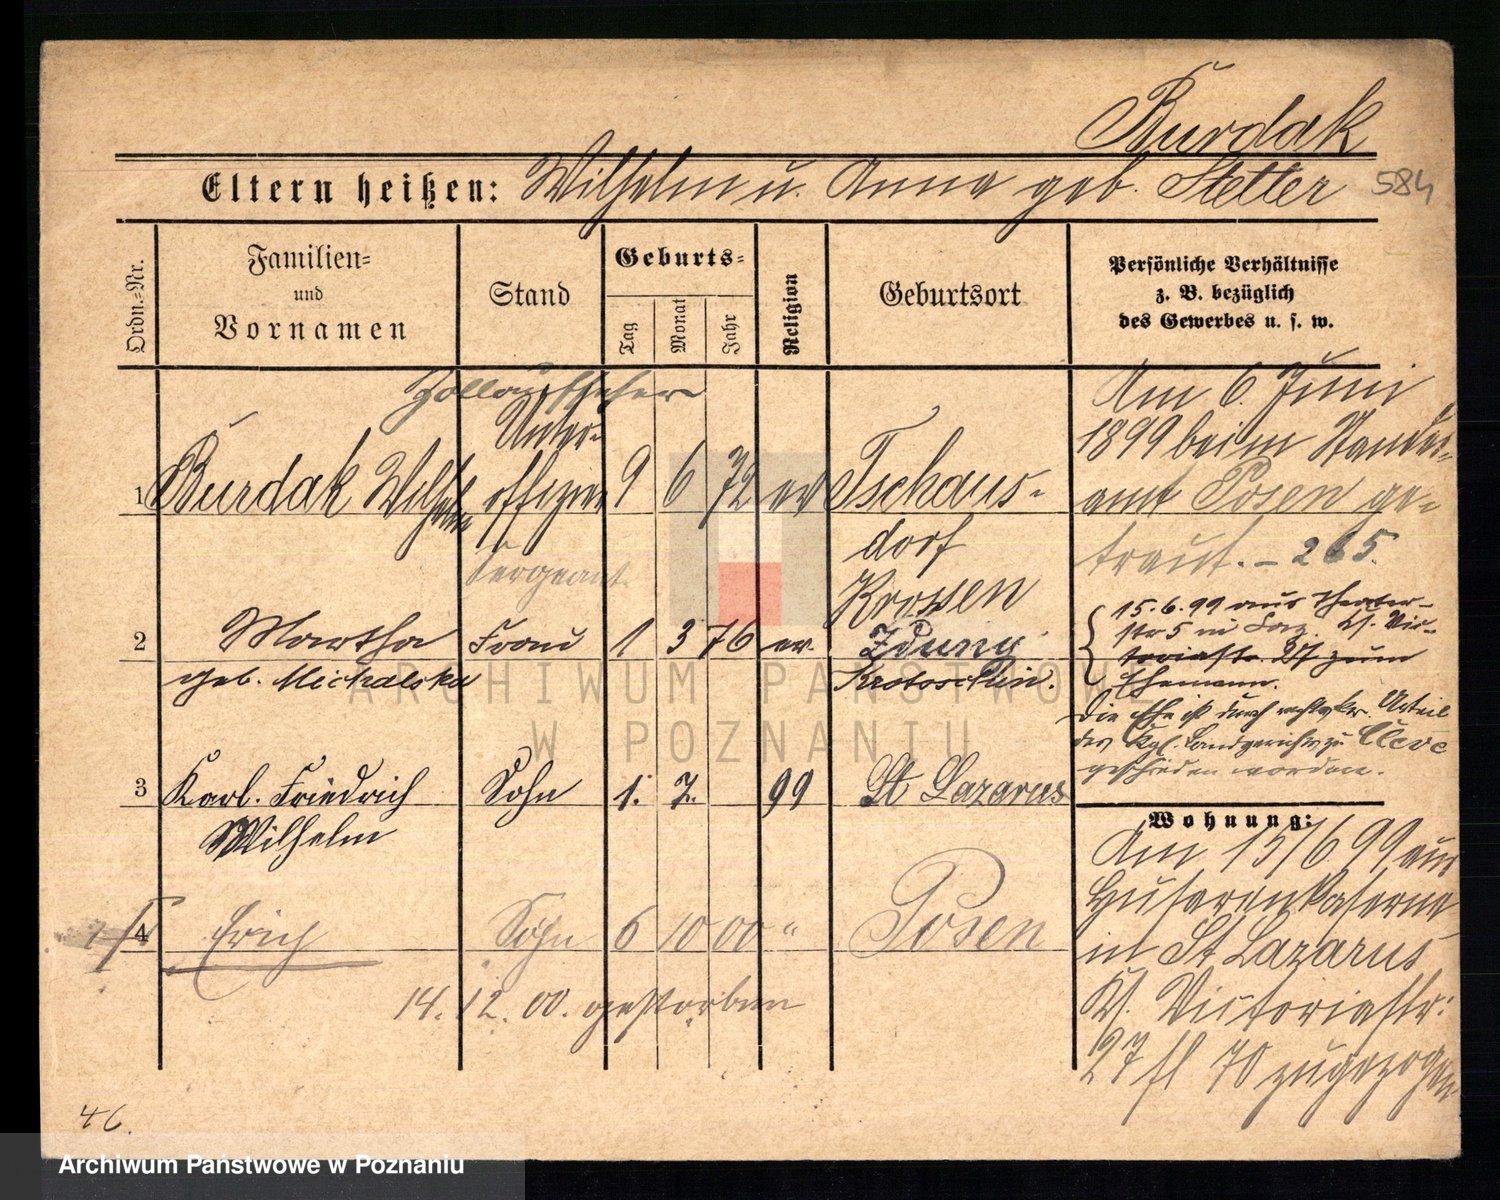 Burdak
Eltern heißen: Wilhelm u. Anna geb. Stetter
584
Ordn.-Nr.
Familien-
und
Vornamen
Stand
Geburts-
Tag
Monat
Jahr
Religion
Geburtsort
Persönliche Verhältnisse
z. B. bezüglich
des Gewerbes u. s. w.
Zollaufseher
Unter-
1 Burdak Wilhelm offizier 9 6 72 ev Tschaus-
dorf
Sergeant
Krossen
2 Martha Frau 1 3 76 ev. Zduny
geb. Michalska Krotoschin.
3 Karl. Friedrich Sohn 1. 7. 99 St Lazarus
Wilhelm
4 Erich Sohn 6 10 00 " Posen
14. 12. 00. gestorben
Am 6. Juni
1899 beim Standes-
amt Posen ge-
traut. - 265.
15.6.99 aus Theater-
str 5 in Laz. Vic-
toriastr. 27 zum
Ehemann.
Die Ehe ist durch Urteil
des Kgl. Landgerichts zu Cleve
geschieden worden.
Wohnung:
Am 15/6 99 aus
Husarenkaserne
in St Lazarus
Victoriastr.
27 fl 70 zugezogen
46.
ARCHIWUM PAŃSTWOWE
W POZNANIU
Archiwum Państwowe w Poznaniu